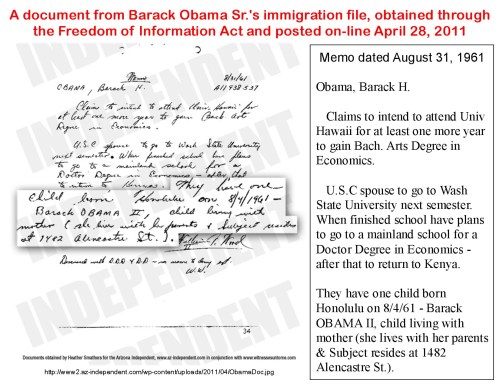 A document from Barack Obama Sr.'s immigration file, obtained through
the Freedom of Information Act and posted on-line April 28, 2011
INDEPENDENT
Memo
8/31/61
OBAMA, Barack H. A11 938 537
Claims to intend to attend Univ. Hawaii for
at least one more year to gain Bach Arts
Degree in Economics.
U.S.C spouse to go to Wash State University
next semester. When finished school have plans
to go to a mainland school for a
Doctor Degree in Economics - after that
to return to Kenya. They have one
child born Honolulu on 8/4/1961 -
Barack OBAMA II, child living with
mother (she lives with her parents & subject resides
at 1482 Alencastre St.).
34
Documents obtained by Heather Smathers for the Arizona Independent, www.az-independent.com in conjunction with www.witnesseastone.com
http://www2.az-independent.com/wp-content/uploads/2011/04/ObamaDoc.jpg
Memo dated August 31, 1961
Obama, Barack H.
Claims to intend to attend Univ
Hawaii for at least one more year
to gain Bach. Arts Degree in
Economics.
U.S.C spouse to go to Wash
State University next semester.
When finished school have plans
to go to a mainland school for a
Doctor Degree in Economics -
after that to return to Kenya.
They have one child born
Honolulu on 8/4/61 - Barack
OBAMA II, child living with
mother (she lives with her parents
& Subject resides at 1482
Alencastre St.).